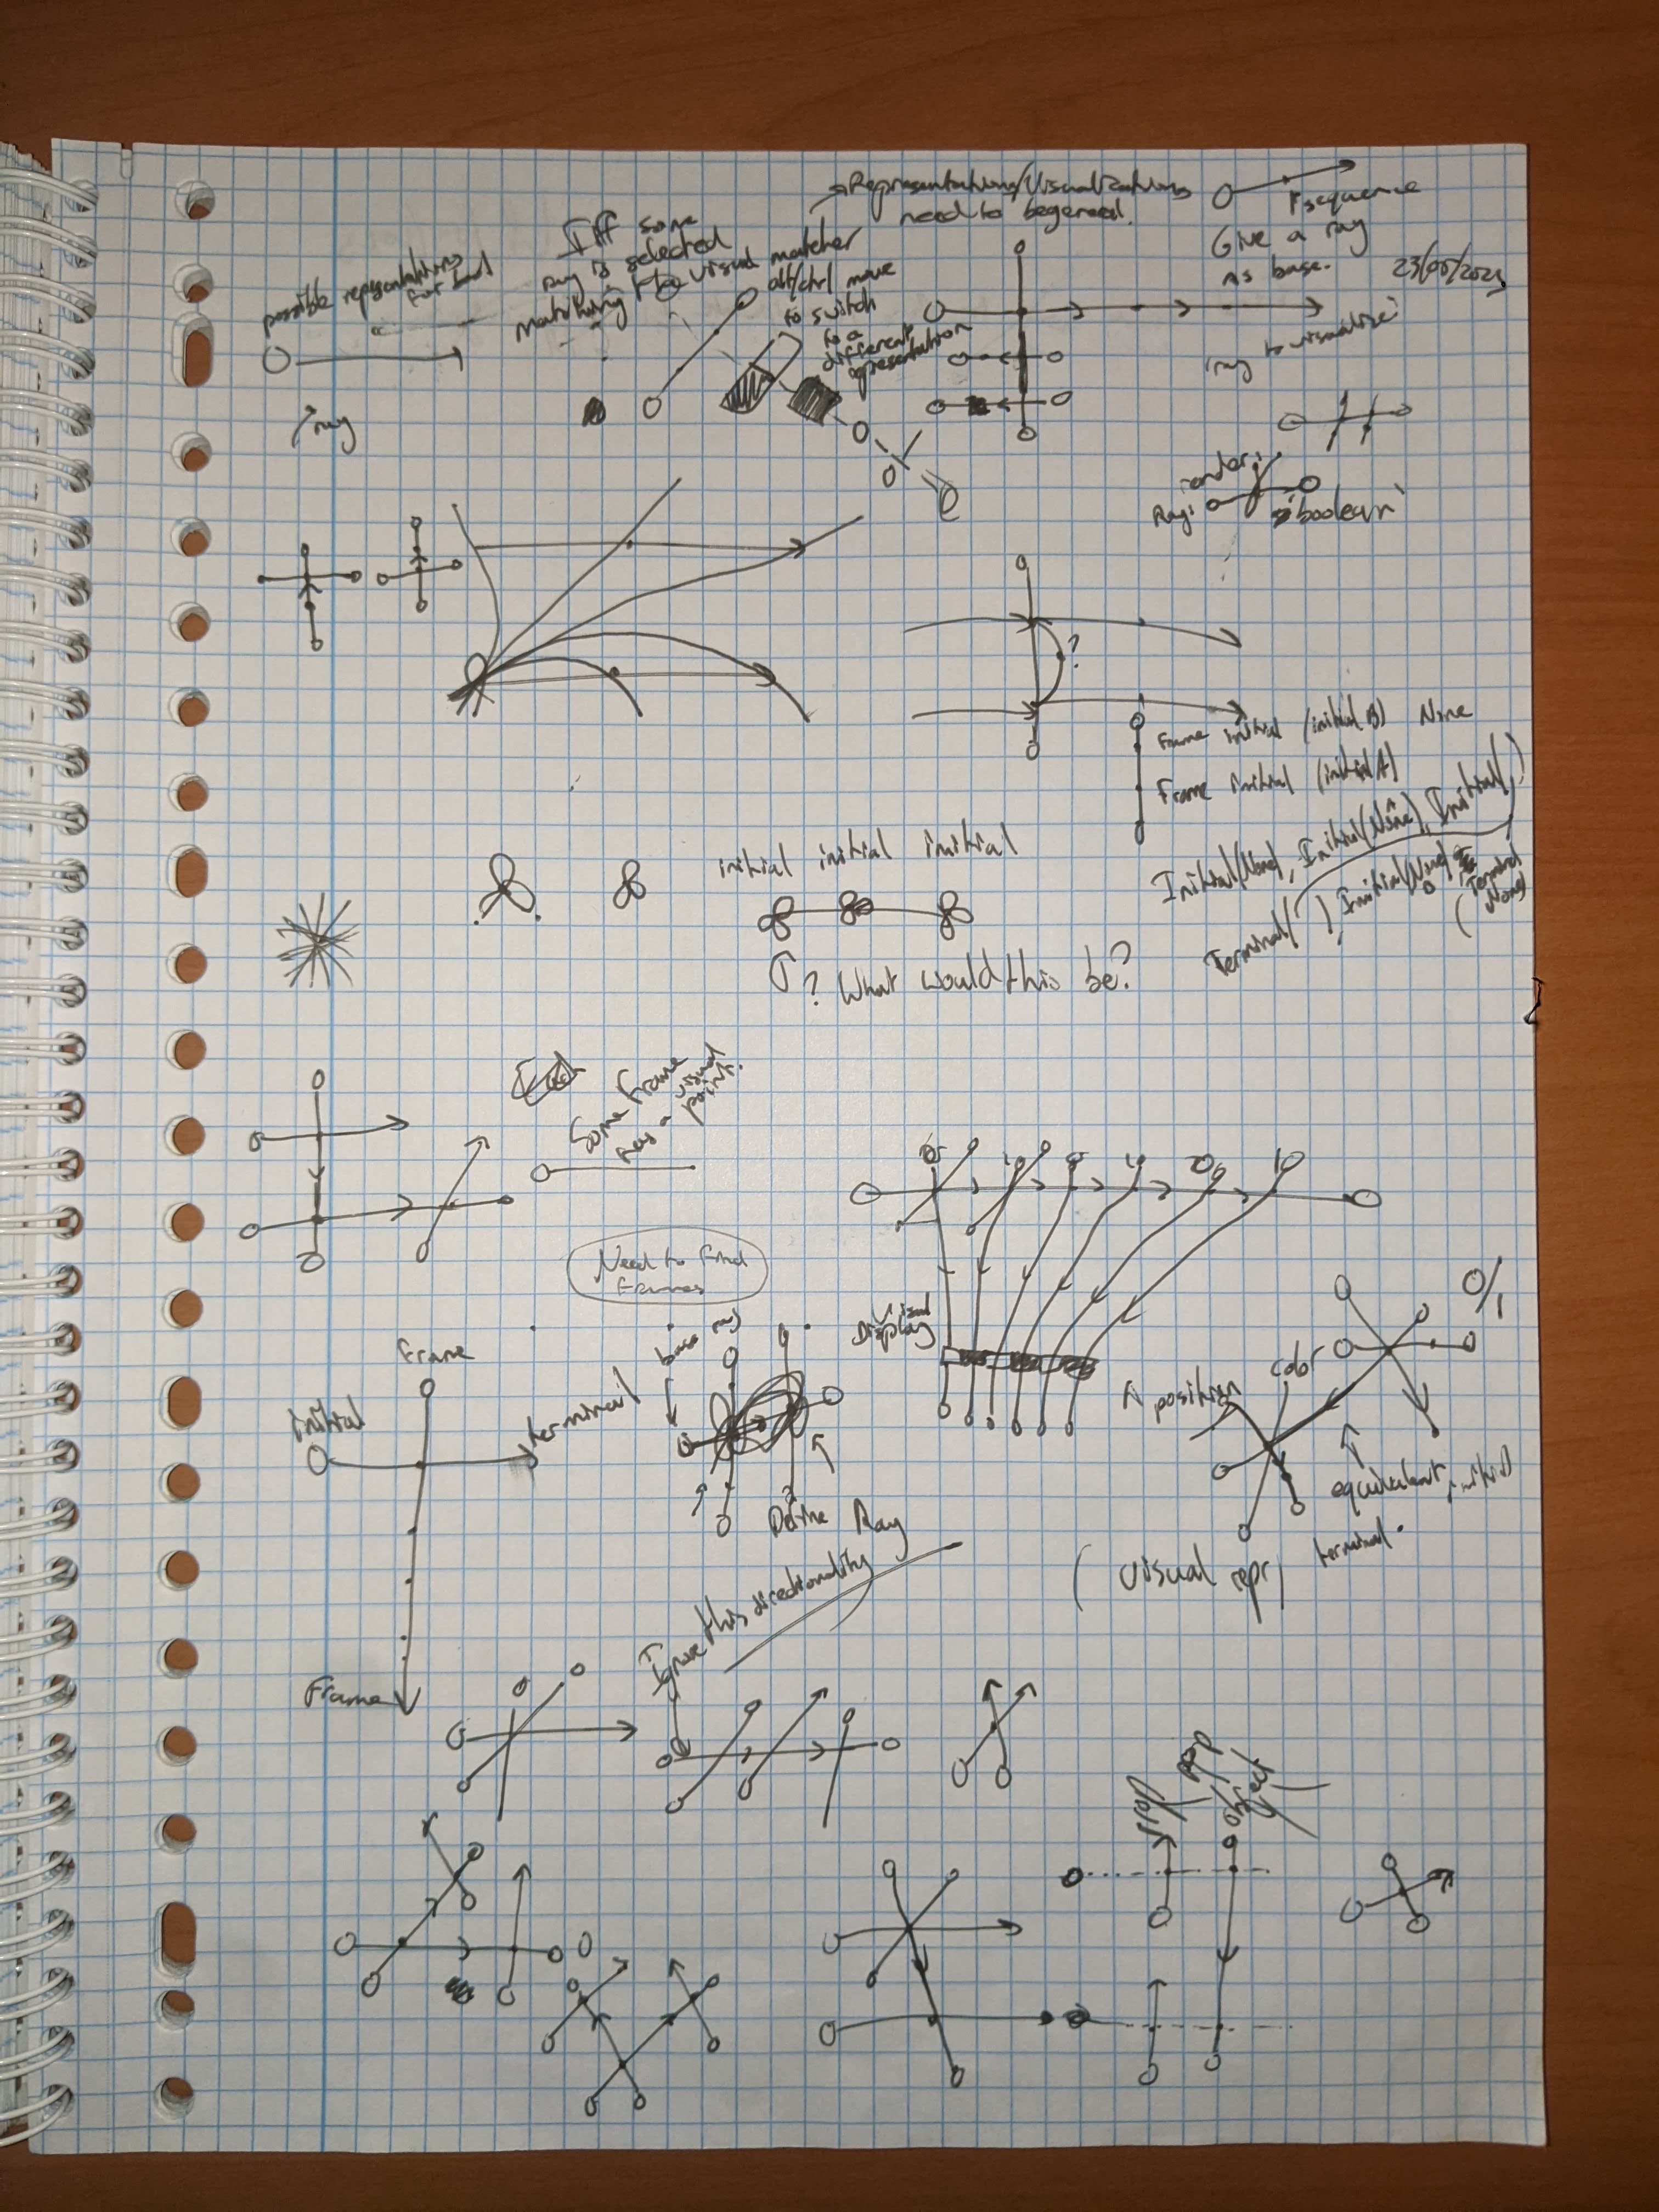 Representations/Visualizations
need to be general.
sequence
Give a ray
as base.
'ray to visualize'
possible representations
for
ray
Iff some
ray is selected
matching the visual matcher
alt/ctrl move
to switch
to a
different
representation
Ray:
render:
'boolean'
?
Frame initial (initial B) None
Frame initial (initial A)
Initial(None), Initial(None), Initial(
Terminal( ), Initial(None)
(Terminal
None)
initial initial initial
? What would this be?
Some Frame
has a visual
point.
Need to find
frames
Frame
initial
terminal
Frame
base ray
Define Ray
Ignore this directionality
Visual
Display
position
color
0/1
equivalent initial
terminal.
(visual repr)
object